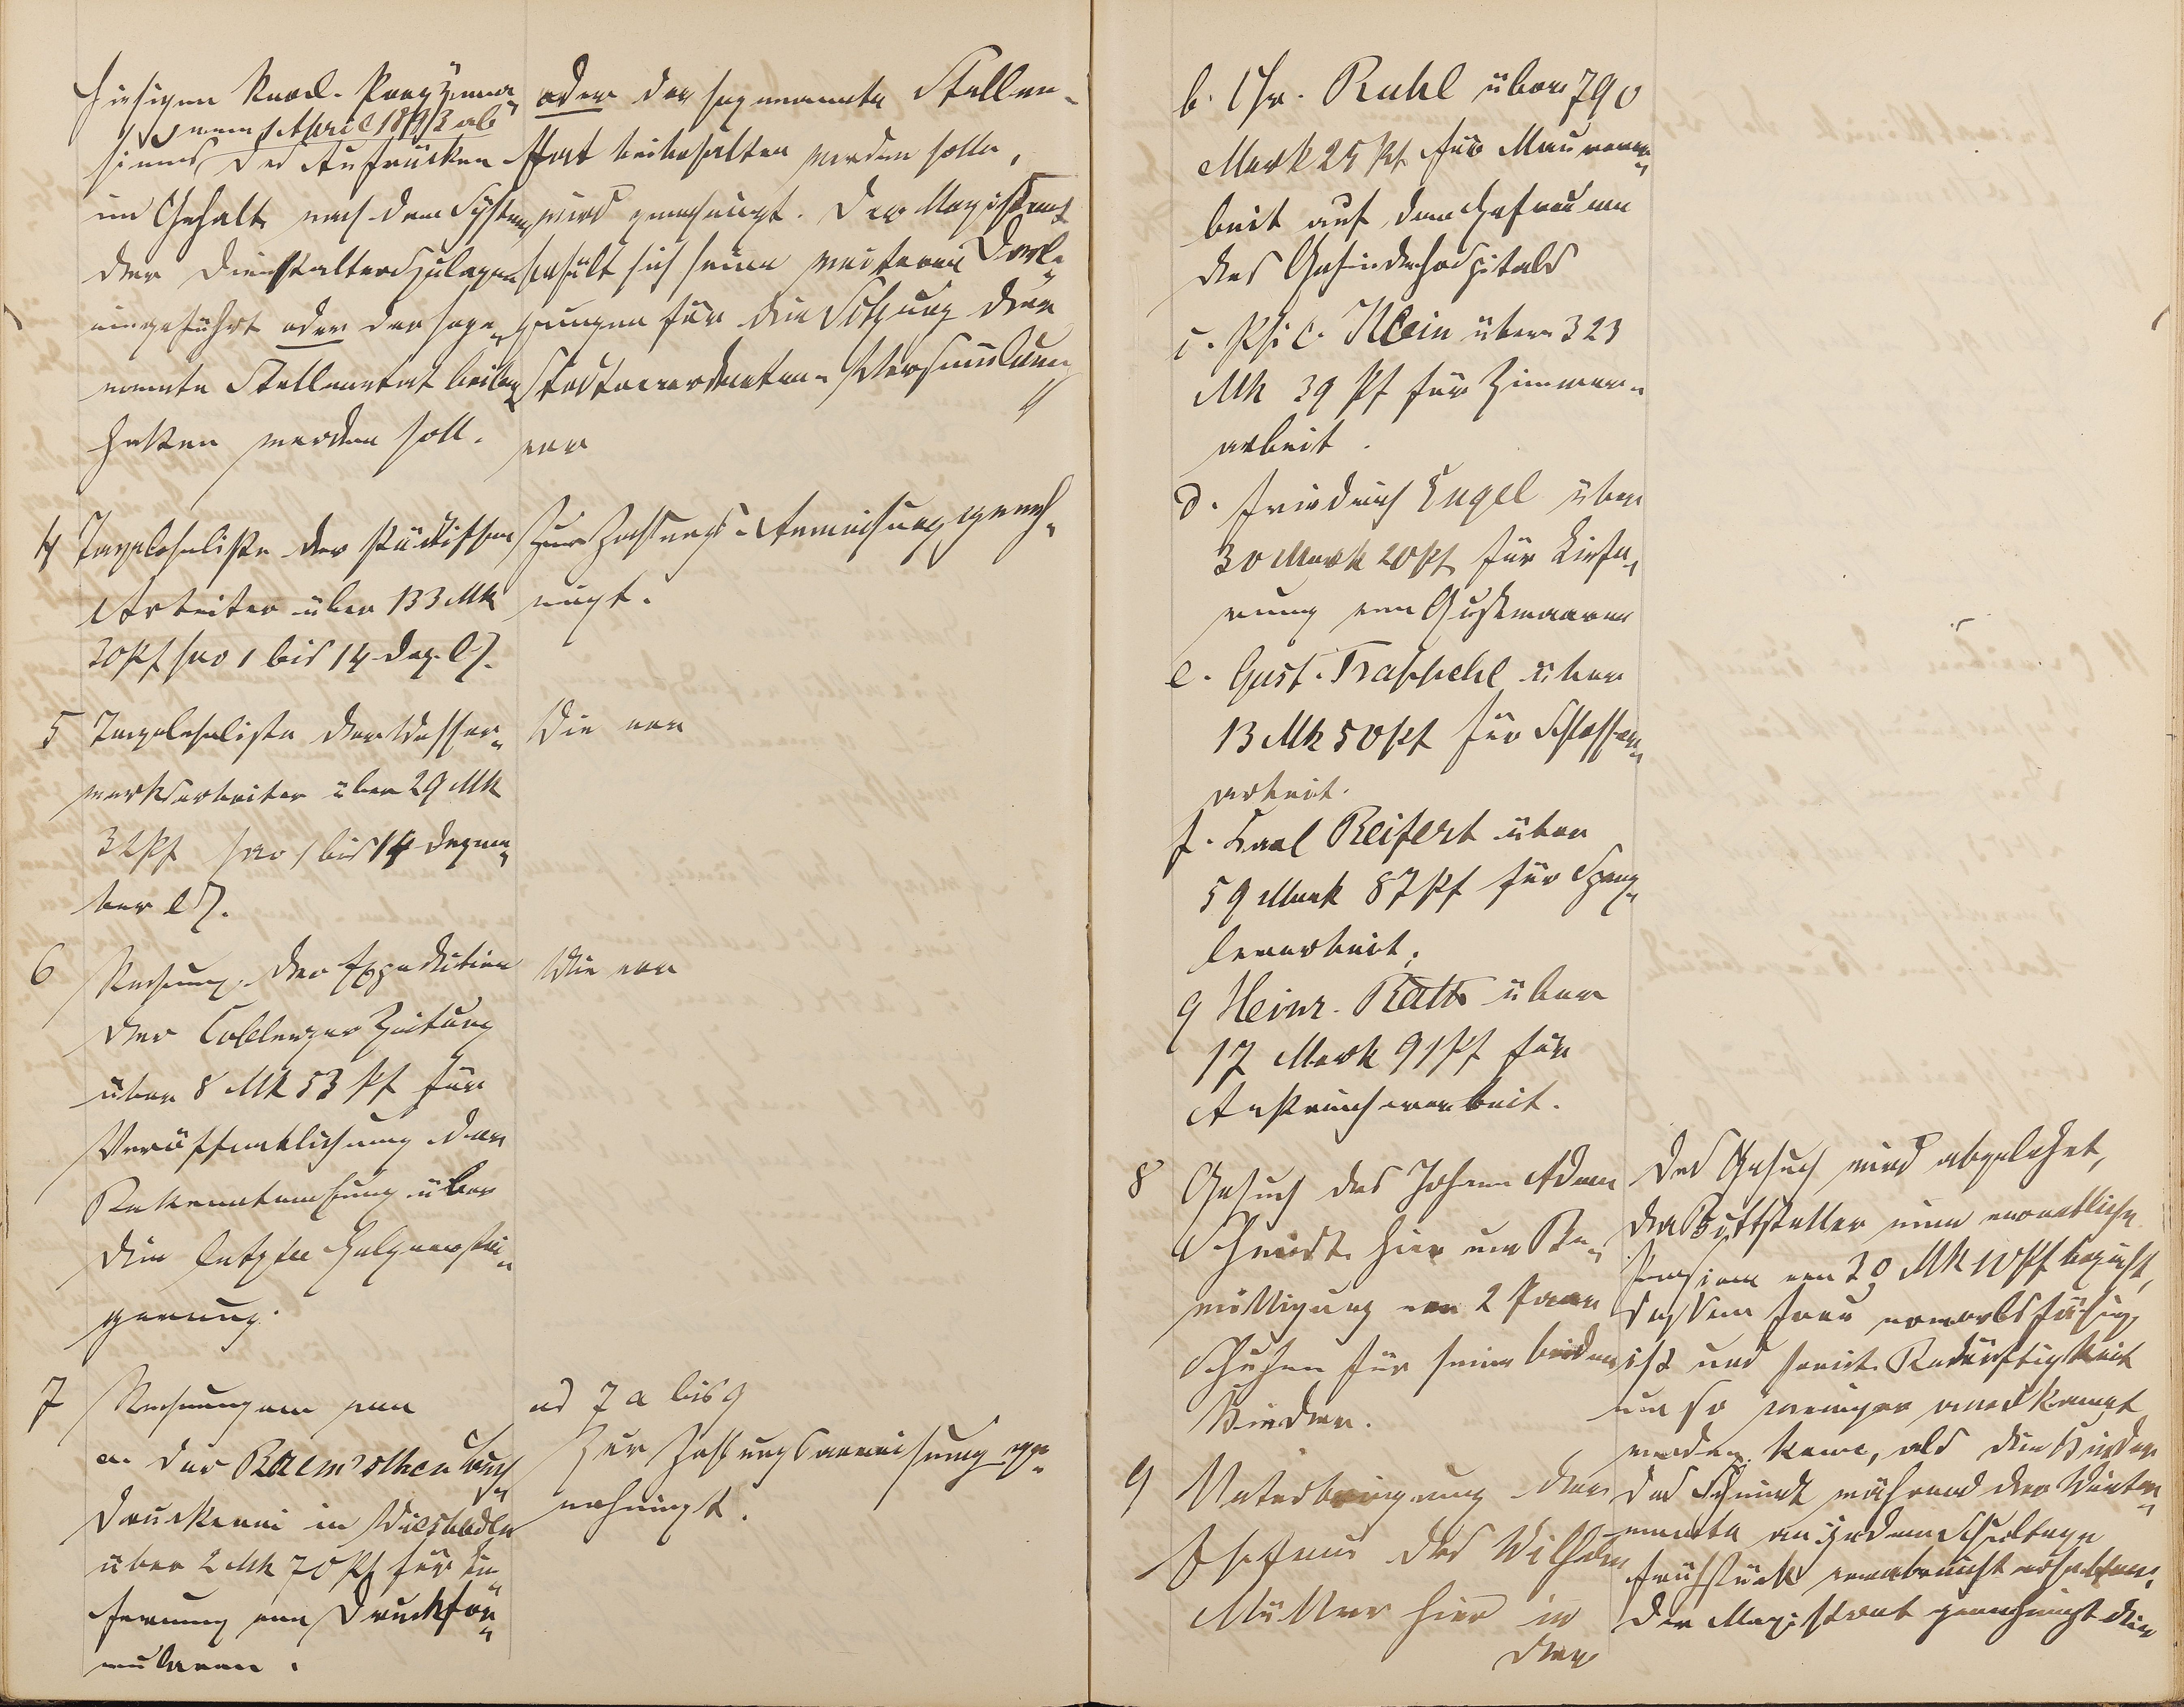 hiesigen Real-Progymna-
vom 1 April 1893 ab
siums das Aufrücken
im Gehalte nach dem System
der Dienstalterszulagen
eingeführt oder der soge-
nannte Stellenetat beibe-
halten werden soll.
oder der sogenannte Stellen-
etat beibehalten werden solle,
wird genehmigt. Der Magistrat
behält sich seine weiteren Darle-
gungen für die Sitzung der
Stadtverordneten-Versammlung
vor
4 Tagelohnliste der städtischen
Arbeiter über 133 Mk
20 Pf pro 1 bis 14 Dez. l. J.
Zur Zahlungs-Anweisung geneh-
migt.
5 Tagelohnliste der Wasser-
werksarbeiter über 29 Mk
32 Pf pro 1 bis 14 Dezem-
ber l. J.
Wie vor
6 Rechnung der Expedition
der Coblenzer Zeitung
über 8 Mk 53 Pf für
Veröffentlichung der
Bekanntmachung über
die letzte Holzverstei-
gerung.
Wie vor
7 Rechnungen von
a. der Buch-
druckerei in Wiesbaden
über 2 Mk 70 Pf für Lie-
ferung von Druckfor-
mularen.
ad 7 a bis g
Zur Zahlungsanweisung ge-
nehmigt.
b. Chr. Ruhl über 790
Mark 25 Pf für Maurerar-
beit auf dem Hofraume
des Gesindehospitals
c. Phil. Klein über 323
Mk 39 Pf für Zimmer-
arbeit.
d. Friedrich Engel über
30 Mark 20 Pf für Liefe-
rung von Gußwaaren
e. Gust. Trappehl über
13 Mk 50 Pf für Schlosser-
arbeit.
f. Karl Reifert über
59 Mark 87 Pf für Speng-
lerarbeit.
g Heinr. Rath über
17 Mark 91 Pf für
Anstreicherarbeit.
8 Gesuch des Johann Adam
Schmidt hier um Be-
willigung von 2 Paar
Schuhen für seine beiden
Kinder.
Das Gesuch wird abgelehnt,
da Bittsteller eine monatliche
Pension von 20 Mk 10 Pf bezieht,
dessen Frau erwerbsfähig
ist und somit Bedürftigkeit
um so weniger anerkannt
werden kann, als die Kinder
des Schmidt während der Winter-
monate an jedem Schultage
Frühstück verabreicht erhalten.
9 Unterbringung der
Ehefrau des Wilhelm
Müller hier in
der
Der Magistrat genehmigt die